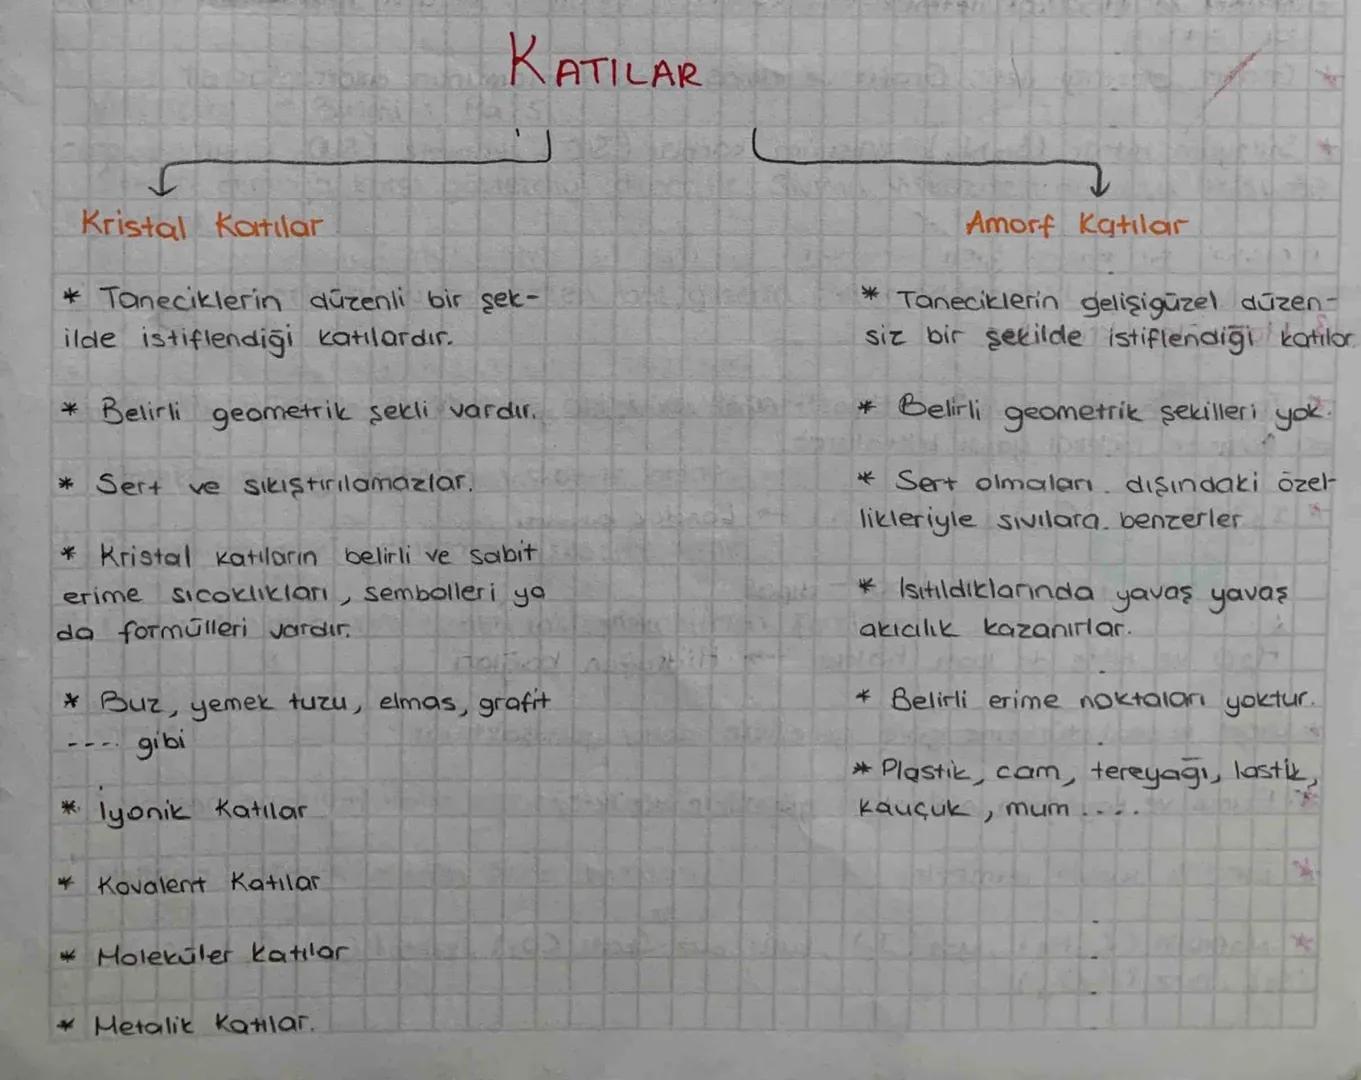 KATILAR
Kristal Katılar
* Taneciklerin düzenli bir şek-
ilde istiflendiği katılardır.
* Belirli geometrik şekli vardır.
* Sert ve sıkıştırılamazlar.
* Kristal katıların belirli ve sabit
erime sıcaklıkları, sembolleri ya
da formülleri vardır.
* Buz, yemek tuzu, elmas, grafit
---- gibi
* İyonik Katılar
* Kovalent Katılar
* Moleküler Katılar
* Metalik Katılar.
Amorf Katılar
* Taneciklerin gelişigüzel düzen-
siz bir şekilde istiflendiği katılar
* Belirli geometrik şekilleri yok.
* Sert olmaları dışındaki özel-
likleriyle sıvılara benzerler
* Isıtıldıklarında yavaş yavaş
akıcılık kazanırlar.
* Belirli erime noktaları yoktur.
* Plastik, cam, tereyağı, lastik,
kauçuk, mum ....